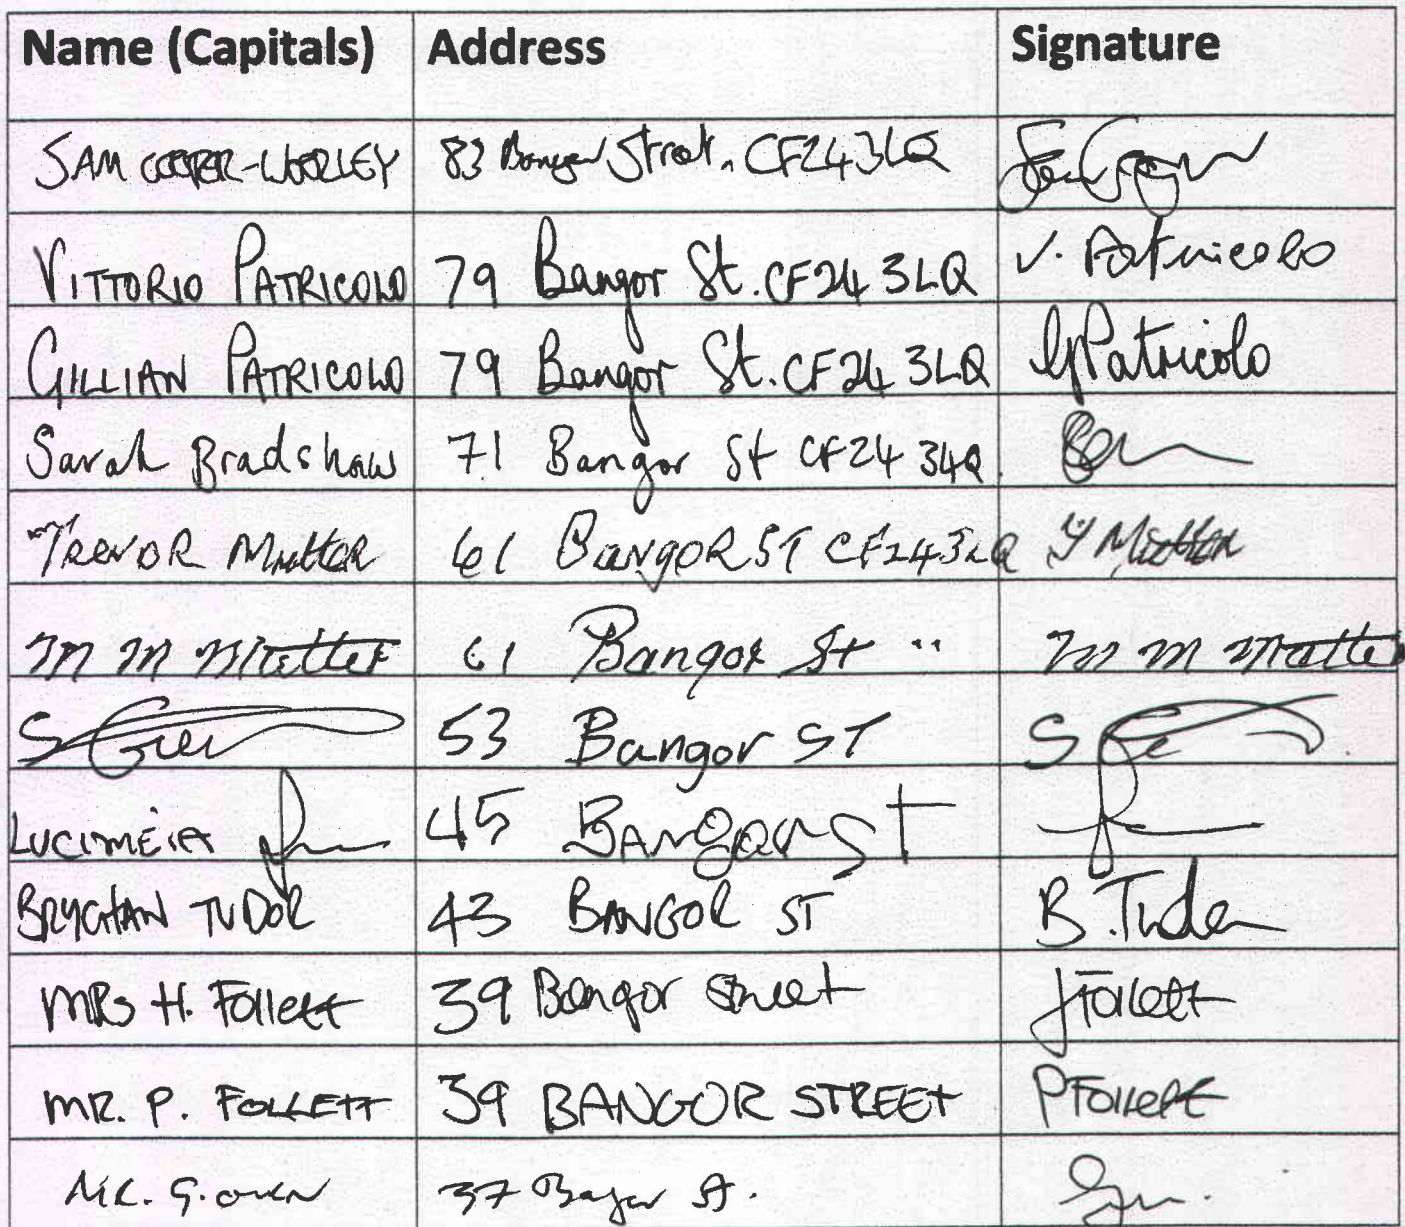 Name (Capitals) Address Signature
SAM COOPER-WORLEY 83 Bangor Street, CF24 3LQ
VITTORIO PATRICOLO 79 Bangor St. CF24 3LQ V. Patricolo
GILLIAN PATRICOLO 79 Bangor St. CF24 3LQ GPatricolo
Sarah Bradshaw 71 Bangor St CF24 3LQ
TREVOR 61 BangoR ST CF24 3LQ
M M 61 Bangor St " M M
S 53 Bangor ST S
LUCIMEIA 45 BANGOR ST
BRYCHAN TUDOR 43 BANGOR ST B. Tudor
MRS H. Follett 39 Bangor Street Follett
MR. P. FOLLETT 39 BANGOR STREET P Follett
MR. G. OWEN 37 Bangor St.